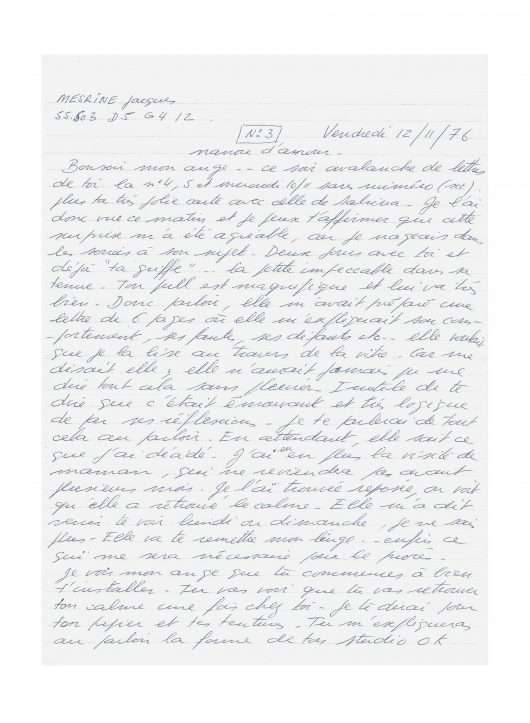 MESRINE Jacques
55.603 D5 G4 12.
N°3 Vendredi 12/11/76
nanou d'amour.
Bonsoir mon ange.. ce soir avalanche de lettres
de toi la n°4, 5 et mercredi 10/11 sans numéro (sic).
plus ta très jolie carte avec celle de Sabrina. Je l'ai
donc vue ce matin et je peux t'affirmer que cette
surprise m'a été agréable, car je nageais dans
les soucis à son sujet. Deux jours avec toi et
déjà "ta griffe"... la petite impeccable dans sa
tenue. Ton pull est magnifique et lui va très
bien. Donc parloir, elle m'avait préparé une
lettre de 6 pages où elle m'expliquait son com-
-portement, ses fautes, ses défauts etc.. elle voulait
que je la lise au travers de la vitre. Car me
disait elle, elle n'aurait jamais pu me
dire tout cela sans pleurer. Inutile de te
dire que c'était émouvant et très logique
de par ses réflexions. Je te parlerai de tout
cela au parloir. En attendant, elle sait ce
que j'ai décidé. J'ai eu en plus la visite de
maman, qui ne reviendra pas avant
plusieurs mois. Je l'ai trouvée reposée, on voit
qu'elle a retrouvé le calme. Elle m'a dit
venir te voir lundi ou dimanche, je ne sais
plus. Elle va te remettre mon linge.. enfin ce
qui me sera nécessaire pour le procès.
Je vois mon ange que tu commences à bien
t'installer. Tu vas voir que tu vas retrouver
ton calme une fois chez toi. Je te dirai pour
ton papier et tes tentures. Tu m'expliqueras
au parloir la forme de ton studio OK